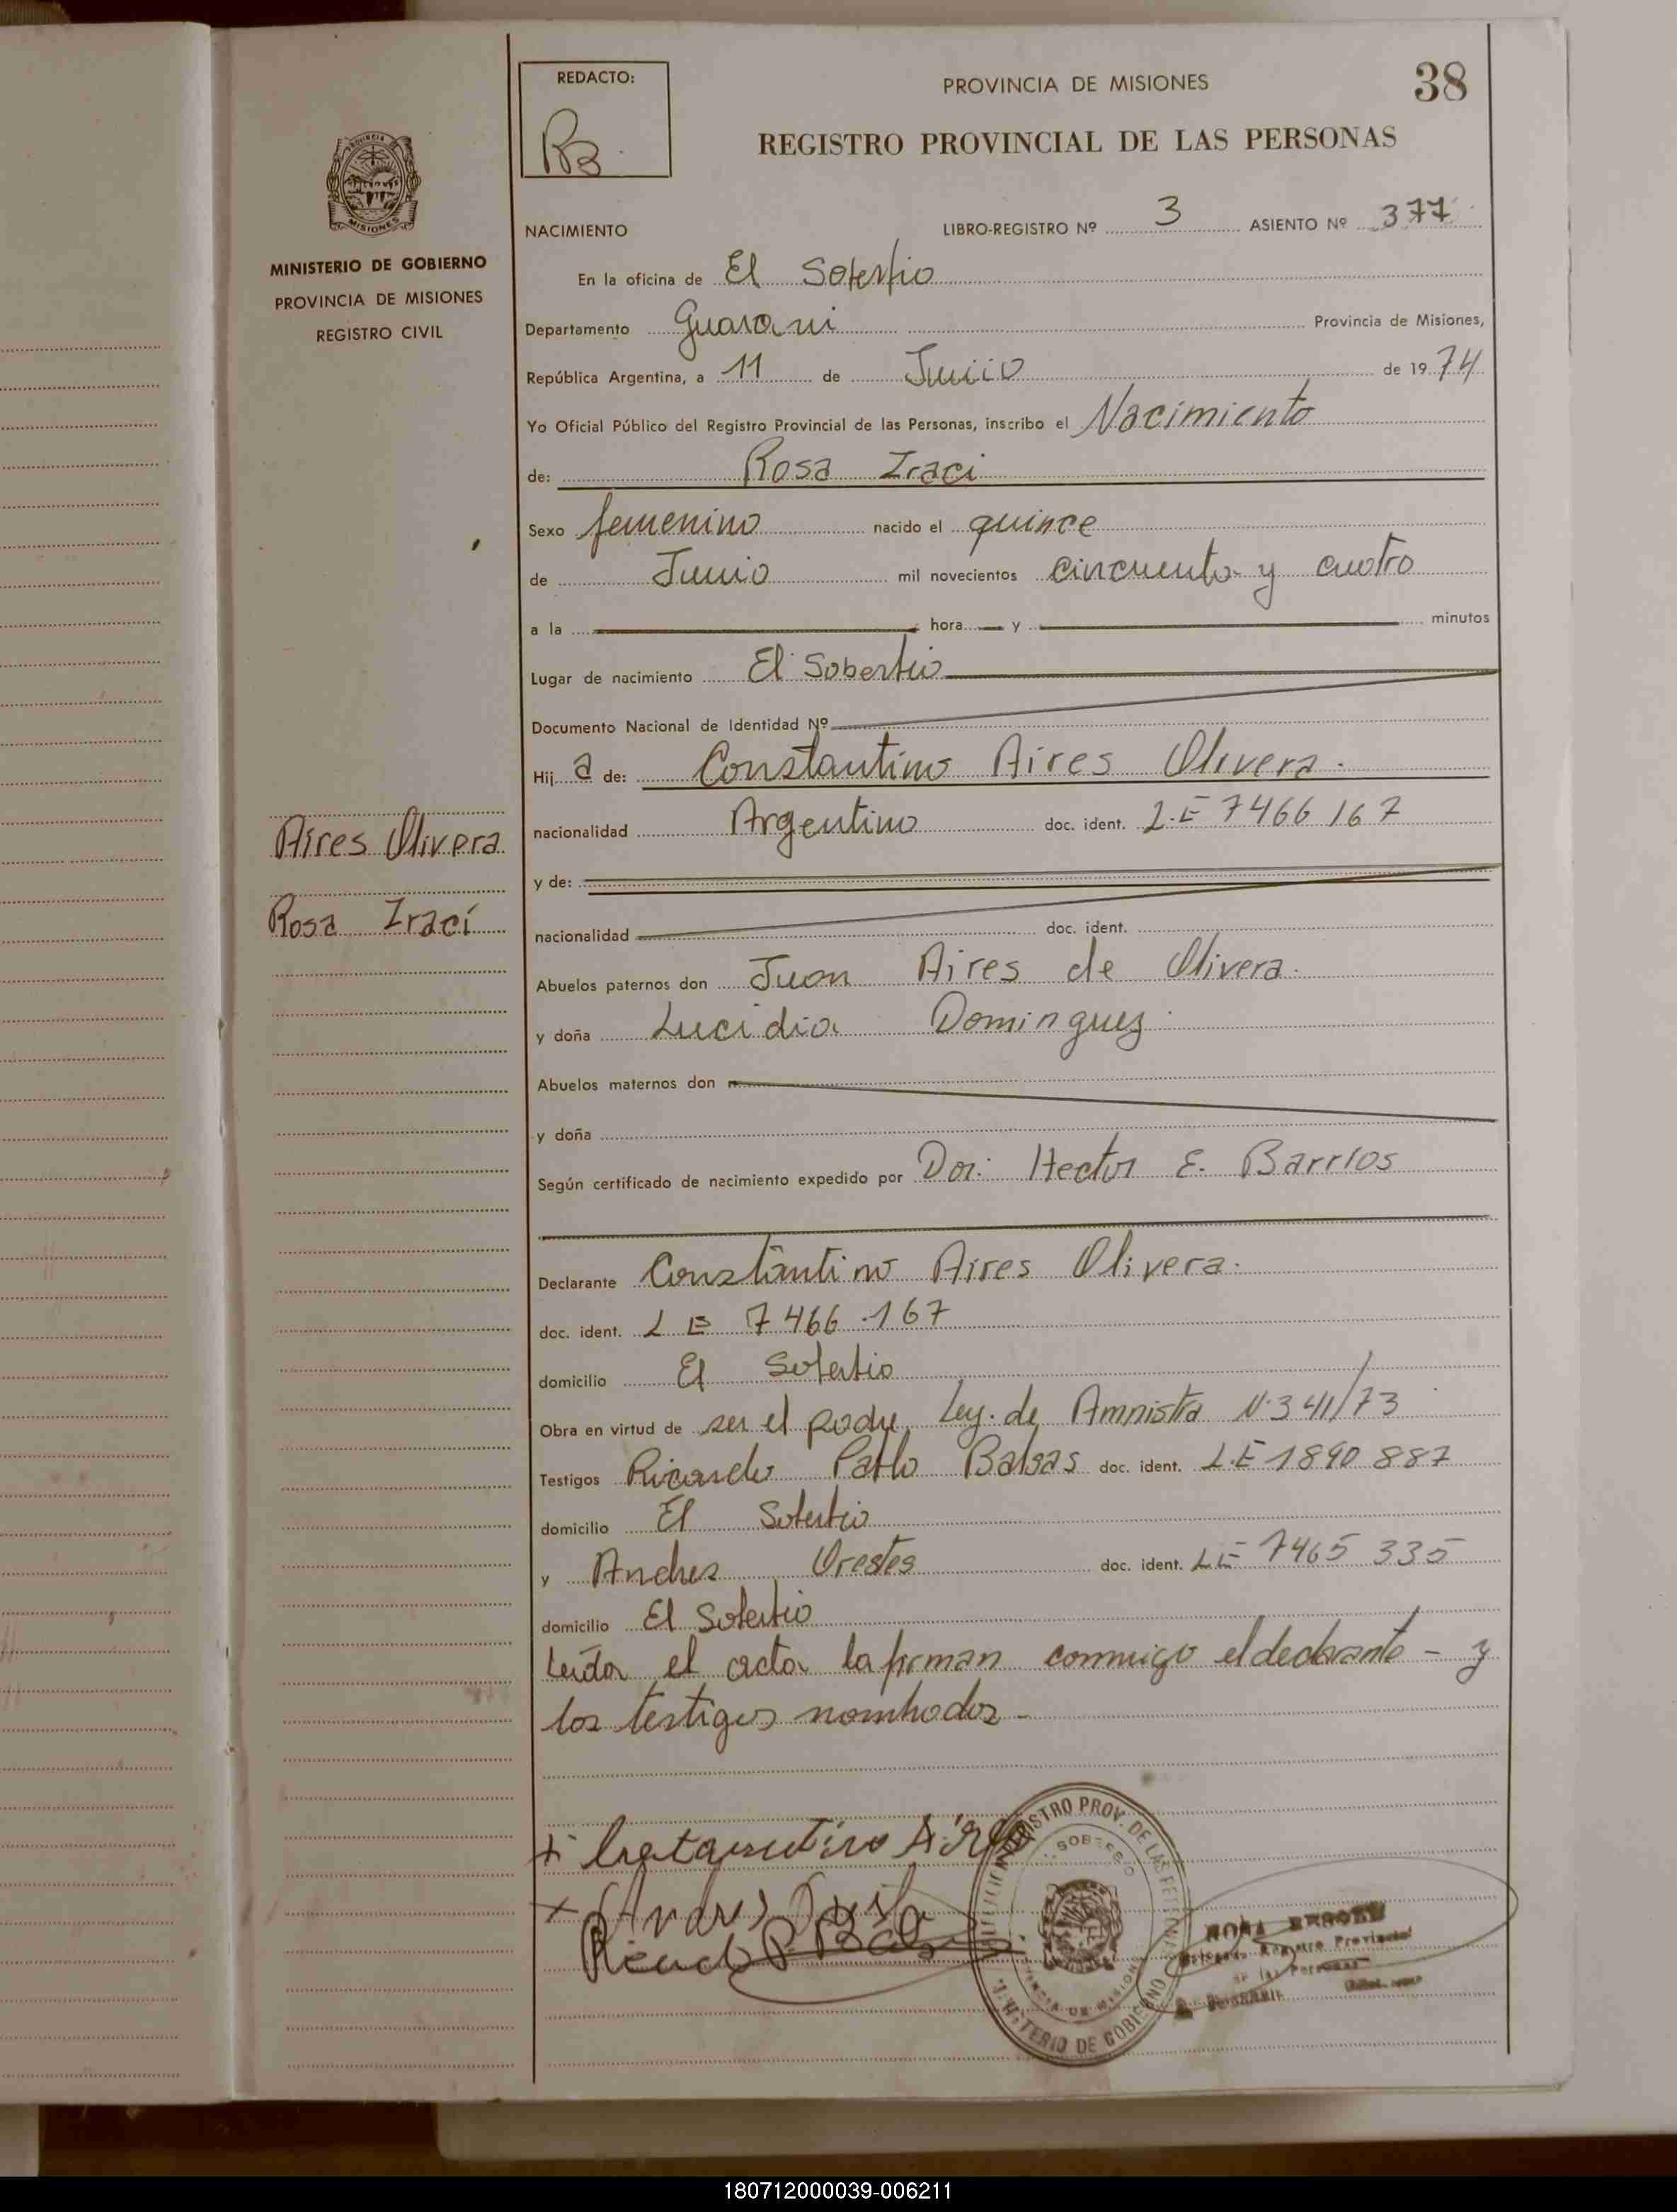 38
REDACTO:
PROVINCIA DE MISIONES
REGISTRO PROVINCIAL DE LAS PERSONAS
MISIONES
MINISTERIO DE GOBIERNO
PROVINCIA DE MISIONES
REGISTRO CIVIL
NACIMIENTO LIBRO-REGISTRO Nº 3 ASIENTO Nº 377
En la oficina de El Soberbio
Departamento Guarani Provincia de Misiones,
República Argentina, a 11 de Junio de 1974
Yo Oficial Público del Registro Provincial de las Personas, inscribo el Nacimiento
de: Rosa Iraci
Sexo femenino nacido el quince
de Junio mil novecientos cincuenta y cuatro
a la hora y minutos
Lugar de nacimiento El Soberbio
Documento Nacional de Identidad Nº
Hij a de: Constantino Aires Olivera.
nacionalidad Argentino doc. ident. L.E 7466 167
y de:
nacionalidad doc. ident.
Aires Olivera
Rosa Iracÿ
Abuelos paternos don Juan Aires de Olivera.
y doña Lucidia Dominguez.
Abuelos maternos don
y doña
Según certificado de nacimiento expedido por Dor: Hector E. Barrios
Declarante Constantino Aires Olivera.
doc. ident. L E 7466.167
domicilio El Soberbio
Obra en virtud de ser el padre Ley. de Amnistia N.341/73
Testigos Ricardo Pablo Balsas doc. ident. L.E 1890 887
domicilio El Soberbio
y Andres Orestes doc. ident. LE 7465 335
domicilio El Soberbio
Leida el acta la firman conmigo el declarante - y
los testigos nombrados -
REGISTRO PROV. DE LAS
SOBERBIO
MINISTERIO DE GOBIERNO
180712000039-006211